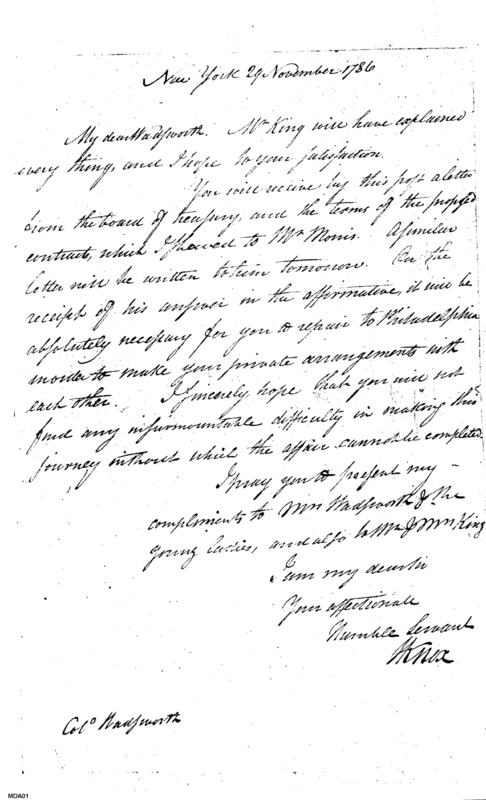 New York 29 November 1786
My dear Wadsworth. Mr King will have explained
every thing, and I hope to your satisfaction.
You will receive by this post a letter
from the board of treasury, and the terms of the proposed
contract, which I shewed to Mr Morris. A similar
letter will be written to him tomorrow. On the
receipt of his answer in the affirmative, it will be
absolutely necessary for you to repair to Philadelphia
in order to make your private arrangements with
each other. I sincerely hope that you will not
find any insurmountable difficulty in making this
journey without which the affair cannot be completed.
I pray you to present my
compliments to Mrs Wadsworth & the
young Ladies, and also to Mr & Mrs King
I am my dear sir
Your affectionate
Humble Servant
HKnox
Colo Wadsworth
MDA01